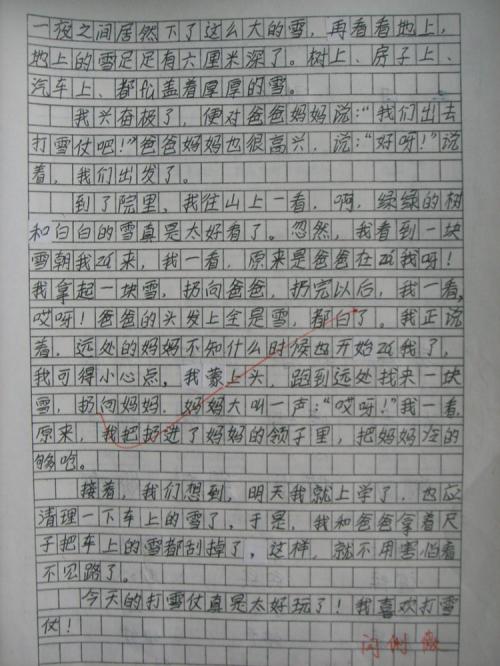 一夜之间居然下了这么大的雪，再看看地上，
地上的雪足足有六厘米深了。树上、房子上、
汽车上、都忪盖着厚厚的雪。
我兴奋极了，便对爸爸妈妈说：“我们出去
打雪仗吧！”爸爸妈妈也很高兴，说：“好呀！”说
着，我们出发了。
到了院里，我往山上一看，啊，绿绿的树
和白白的雪真是太好看了。忽然，我看到一块
雪朝我来，我一看，原来是爸爸在我呀！
我拿起一块雪，扔向爸爸，扔完以后，我一看，
哎呀！爸爸的头发上全是雪，都白了。我正说
着，远处的妈妈不知什么时候也开始我了，
我可得小心点，我蒙上头，跑到远处找来一块
雪，扔向妈妈，妈妈大叫一声：“哎呀！”我一看
原来，我把扔进了妈妈的领子里，把妈妈冷的
够呛。
接着，我们想到，明天我就上学了，也应
清理一下车上的雪了，于是，我和爸爸拿着尺
子把车上的雪都刮掉了，这样，就不用害怕看
不见路了。
今天的打雪仗真是太好玩了！我喜欢打雪
仗！